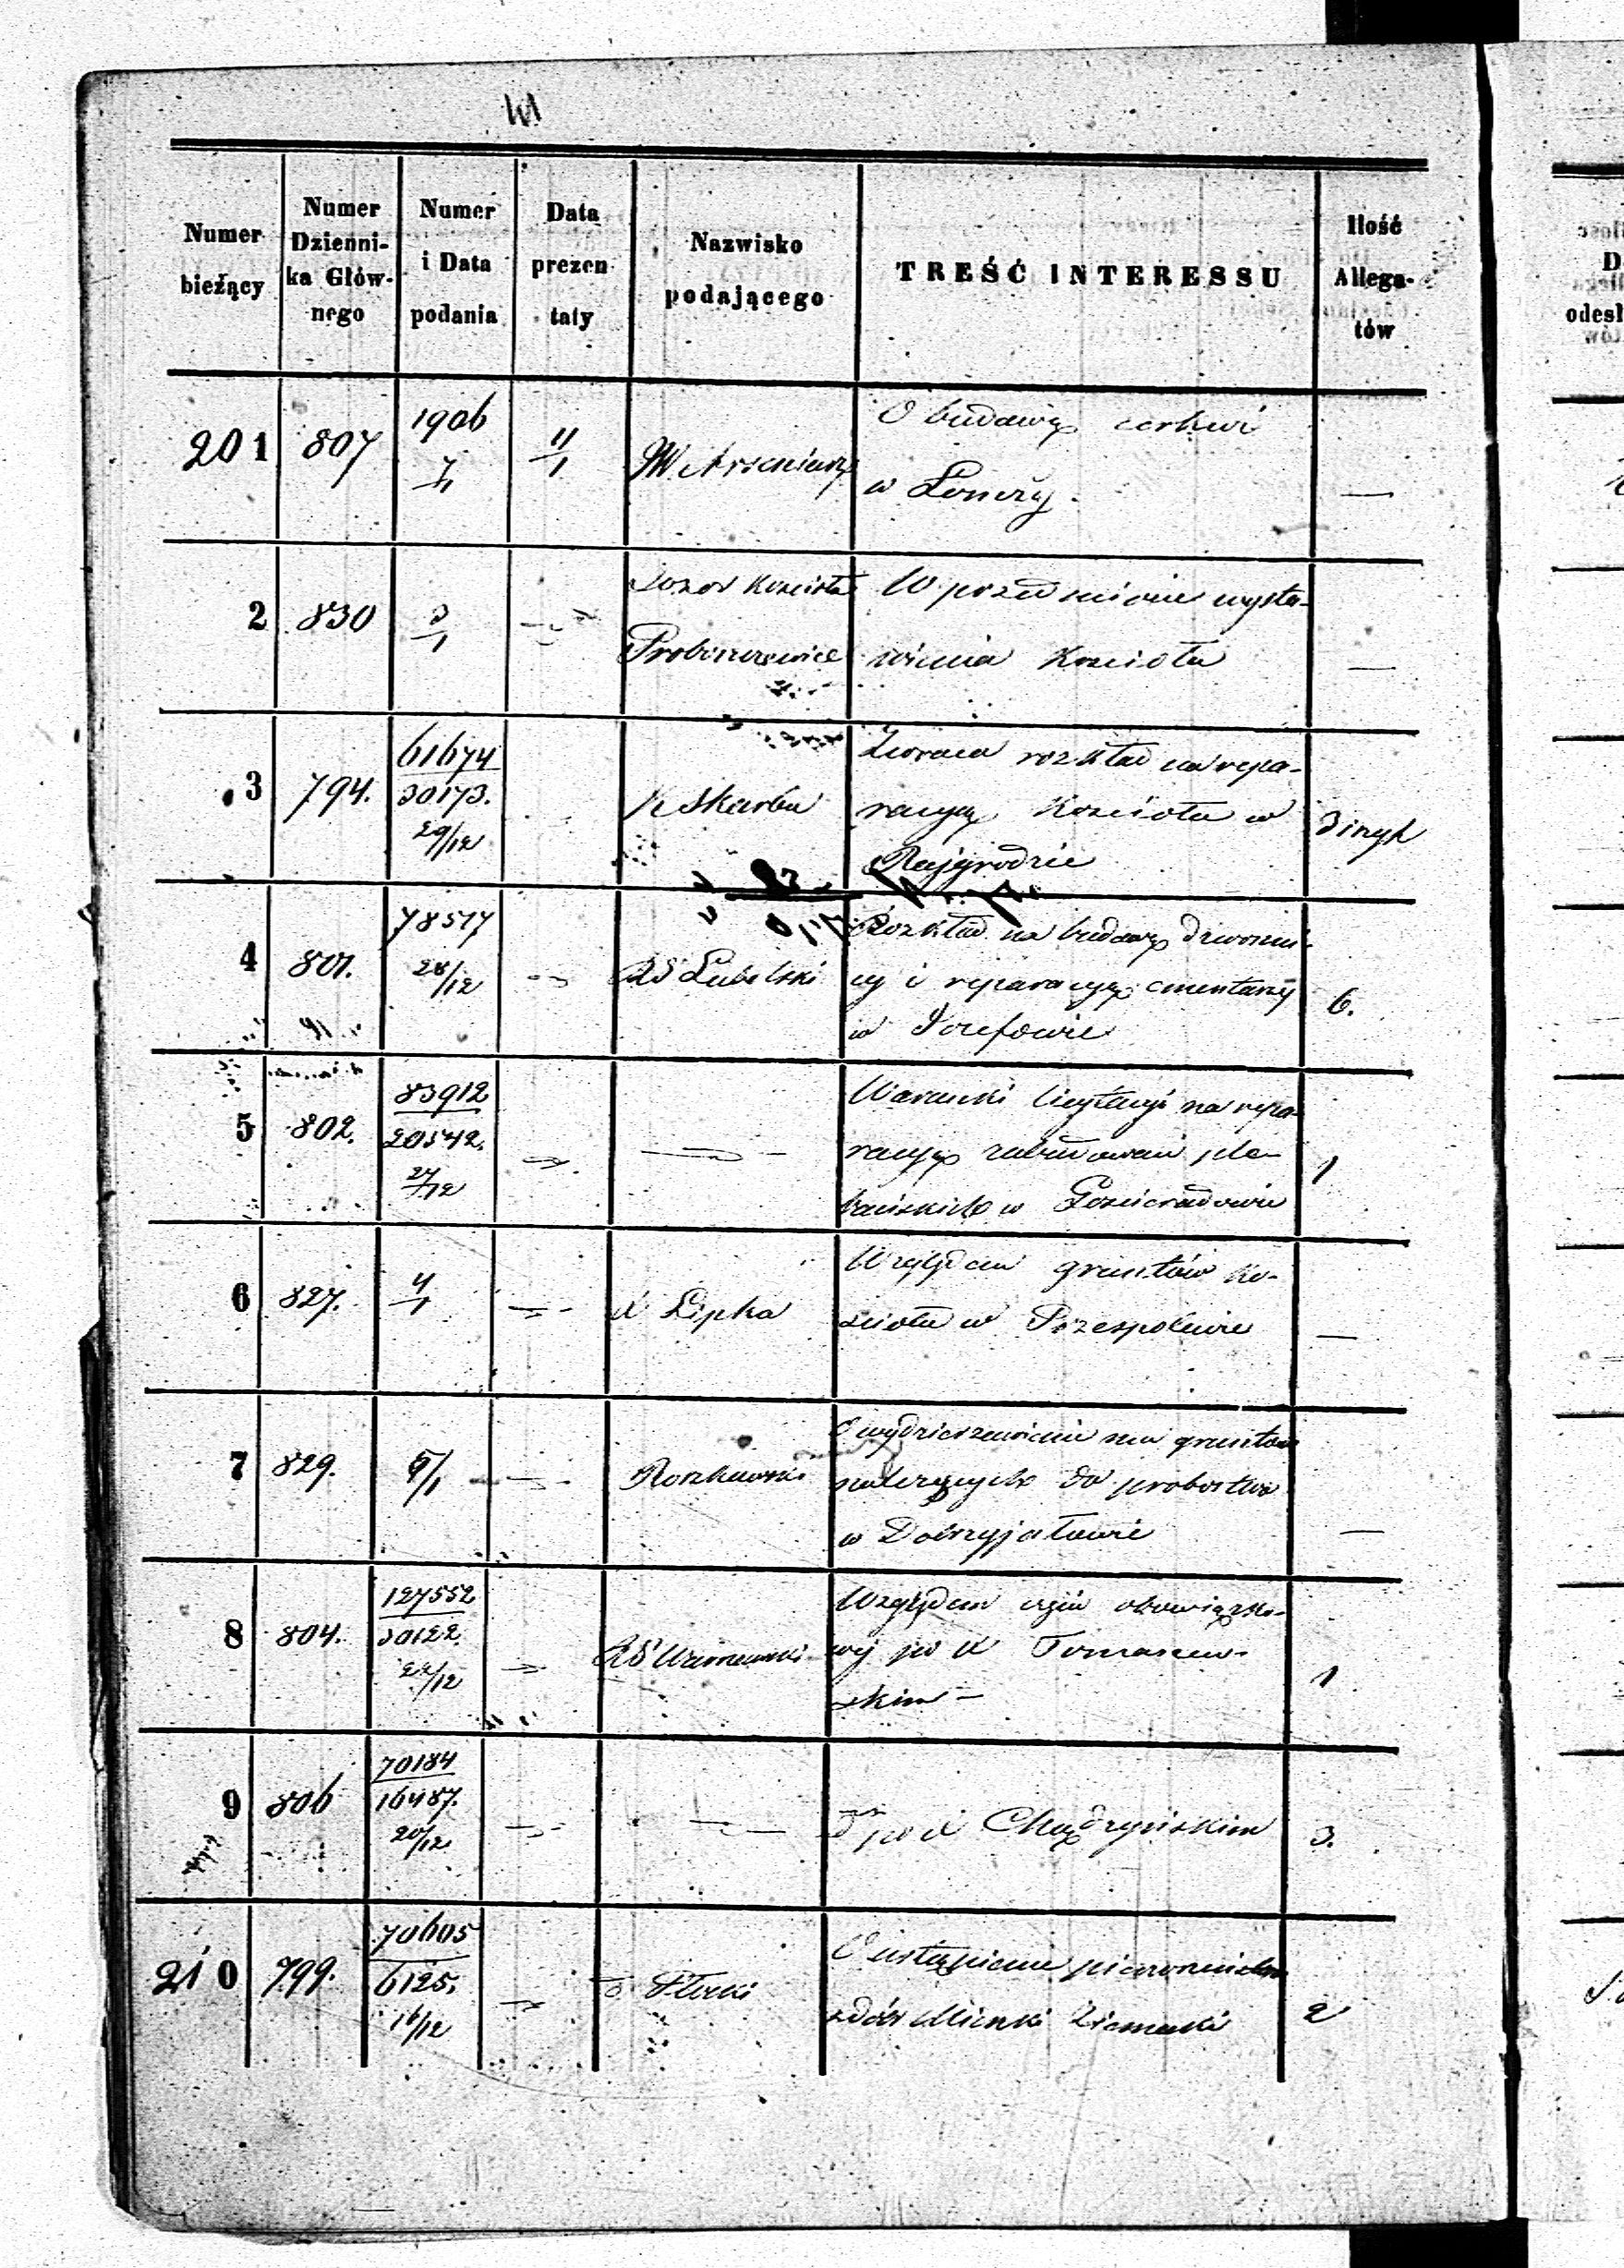 Numer bieżący
Numer Dzienni- ka Głów- nego
Numer i Data podania
Data prezen taty
Nazwisko podającego
TREŚĆ INTERESSU
Ilość Allega- tów
201 807 1906 11/1 O budowę cerkwi
w Łomży. —
2 830 3/1 Dozór Kościoła W przedmiocie wysta-
wienia Kościoła —
3 794. 61674
30173. 29/12 K Skarbu Zwraca rozkład na repa-
racyą Kościoła w
Rajgrodzie
4 801. 78577 28/12 RG Lubelski Rozkład na budowę dzwonni-
cy i reparacyę cmentarzy
w Józefowie 6.
5 802. 83912
20542. 27/12 Warunki licytacyi na repa-
racyę zabudowań ple-
bańskich w Gościeradowie 1
6 827. 4/1 X Lipka Względem gruntów Ko-
ścioła w Przespolewie —
7 829. 5/1 Roszkowski O wydzierżawienie mu gruntów
należących do probostwa
w Dobrzyjałowie —
8 804. 127552
30122. 22/12 RG Warszawski Względem
po X Tomaszew-
skim — 1
9 806 70184
16487. 20/12 po X Chądzyńskim 3.
210 799. 70605
6125. 16/12 Płocki O ustąpienie
z dóbr 2